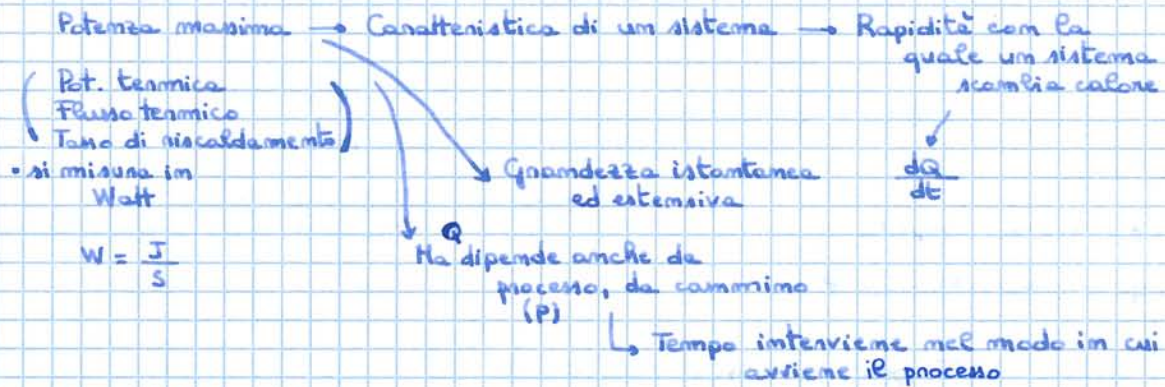 Potenza massima → Caratteristica di un sistema → Rapidità con la
quale un sistema
scambia calore
( Pot. termica
Flusso termico
Tasso di riscaldamento )
• si misura in
Watt
W = J/s
Grandezza istantanea
ed estensiva
dQ/dt
Q
Ma dipende anche da
processo, da cammino
(P)
↳ Tempo interviene nel modo in cui
avviene il processo